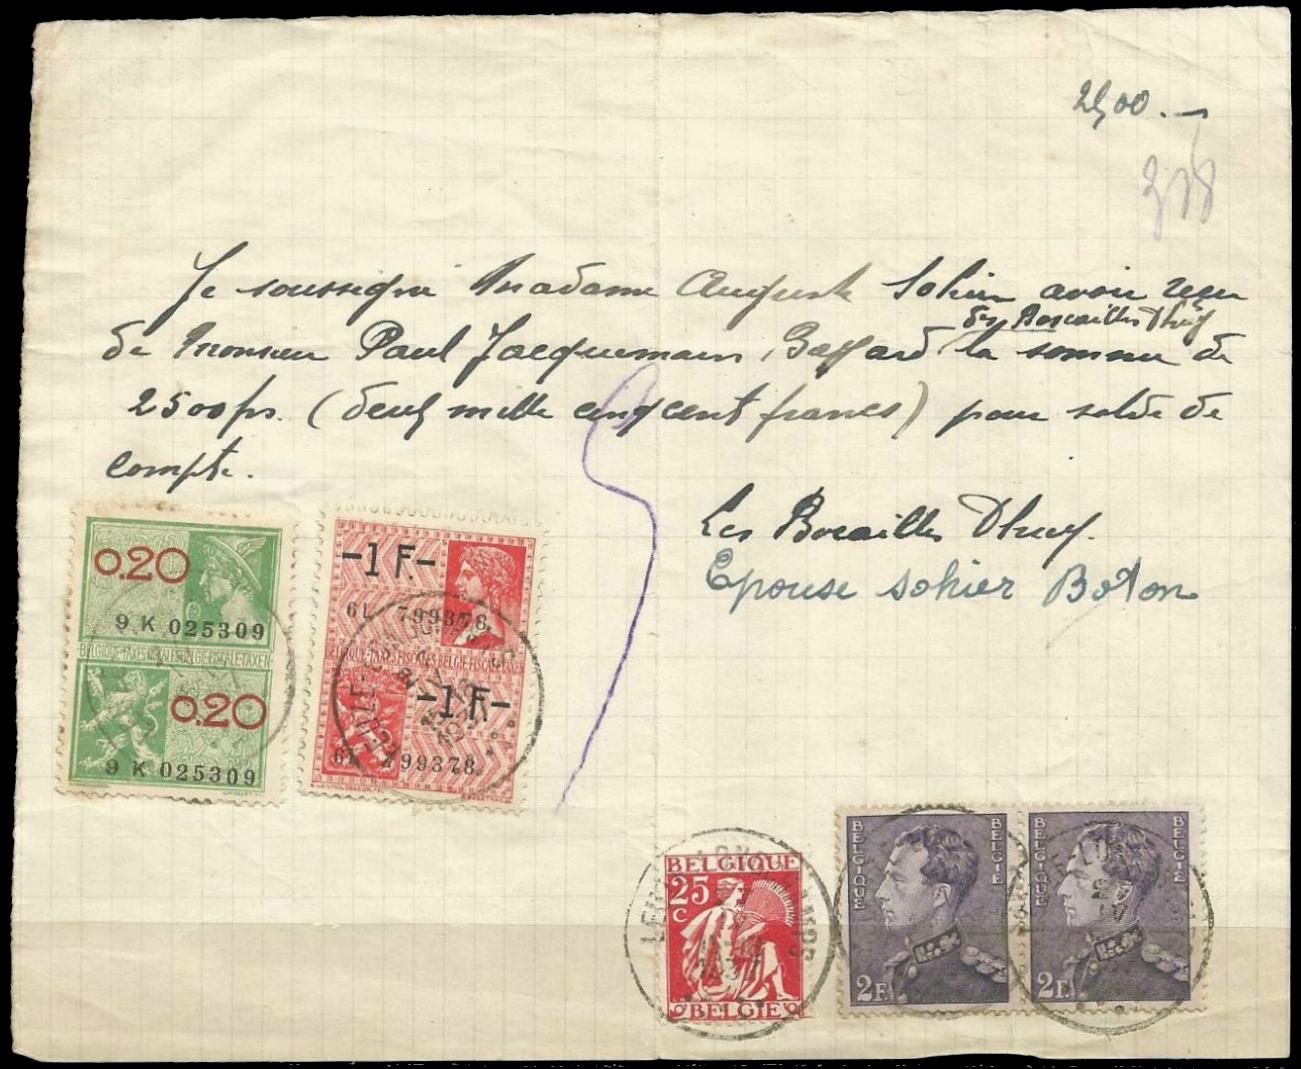 2500.-
Je soussigné Madame Auguste Sohier avoir reçu
de Monsieur Paul Jacquemain, la somme de
2500frs. (deux mille cinqcent francs) pour solde de
compte.
Les Bocailles Dhuy.
Epouse sohier Boton
0.20
9 K 025309
BELGIQUE-TAXES FISCALES BELGIE-FISCALE-TAXEN
0.20
9 K 025309
-1 F.-
6L 799378
BELGIQUE-TAXES FISCALES-BELGIE-FISCALE-TAXEN
-1 F.-
6L 799378
BELGIQUE
25
C
BELGIE
LEUZE-LONGCHAMPS
BELGIQUE
BELGIE
2F.
BELGIQUE
BELGIE
2F.